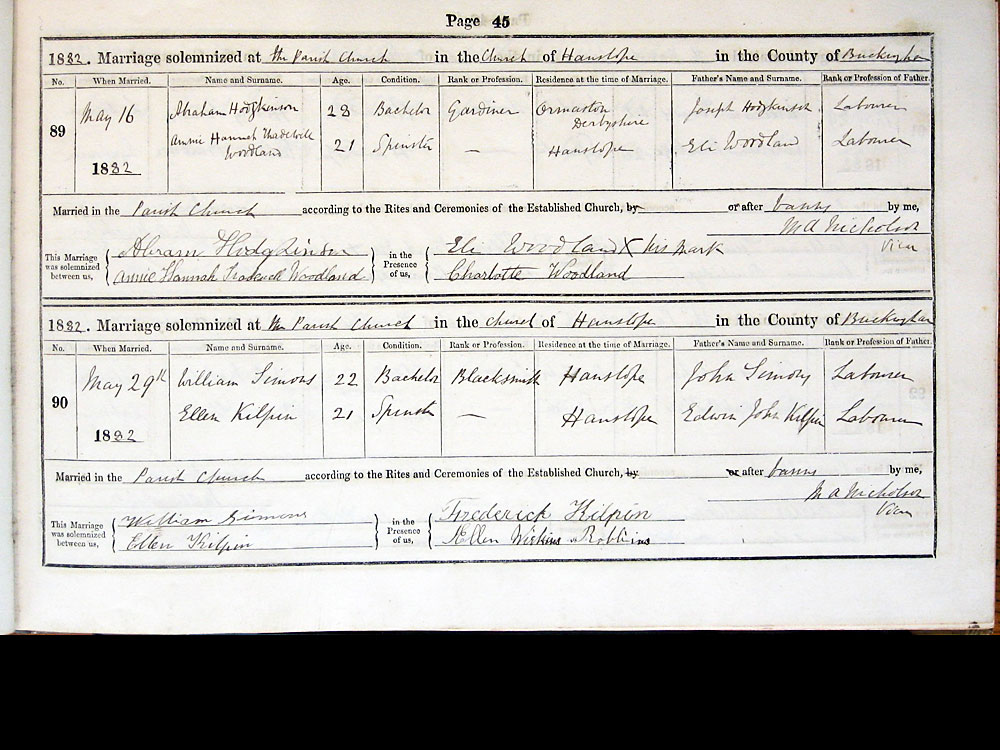 Page 45
1882. Marriage solemnized at the Parish Church in the Church of Hanslope in the County of Buckingham
No. When Married. Name and Surname. Age. Condition. Rank or Profession. Residence at the time of Marriage. Father's Name and Surname. Rank or Profession of Father.
89 May 16 Abraham Hodgkinson 28 Bachelor Gardiner Ormaston Derbyshire Joseph Hodgkinson Labourer
Annie Hannah Woodland 21 Spinster — Hanslope Eli Woodland Labourer
1882
Married in the Parish Church according to the Rites and Ceremonies of the Established Church, by or after banns by me,
M A Nicholson
Vicar
This Marriage was solemnized between us, Abram Hodgkinson in the Presence of us, Eli Woodland X his mark
Annie Hannah Woodland Charlotte Woodland
1882. Marriage solemnized at the Parish Church in the Church of Hanslope in the County of Buckingham
No. When Married. Name and Surname. Age. Condition. Rank or Profession. Residence at the time of Marriage. Father's Name and Surname. Rank or Profession of Father.
90 May 29th William Simons 22 Bachelor Blacksmith Hanslope John Simons Labourer
Ellen Kilpin 21 Spinster — Hanslope Edwin John Kilpin Labourer
1882
Married in the Parish Church according to the Rites and Ceremonies of the Established Church, by or after banns by me,
M A Nicholson
Vicar
This Marriage was solemnized between us, William Simons in the Presence of us, Frederick Kilpin
Ellen Kilpin Ellen Robbins